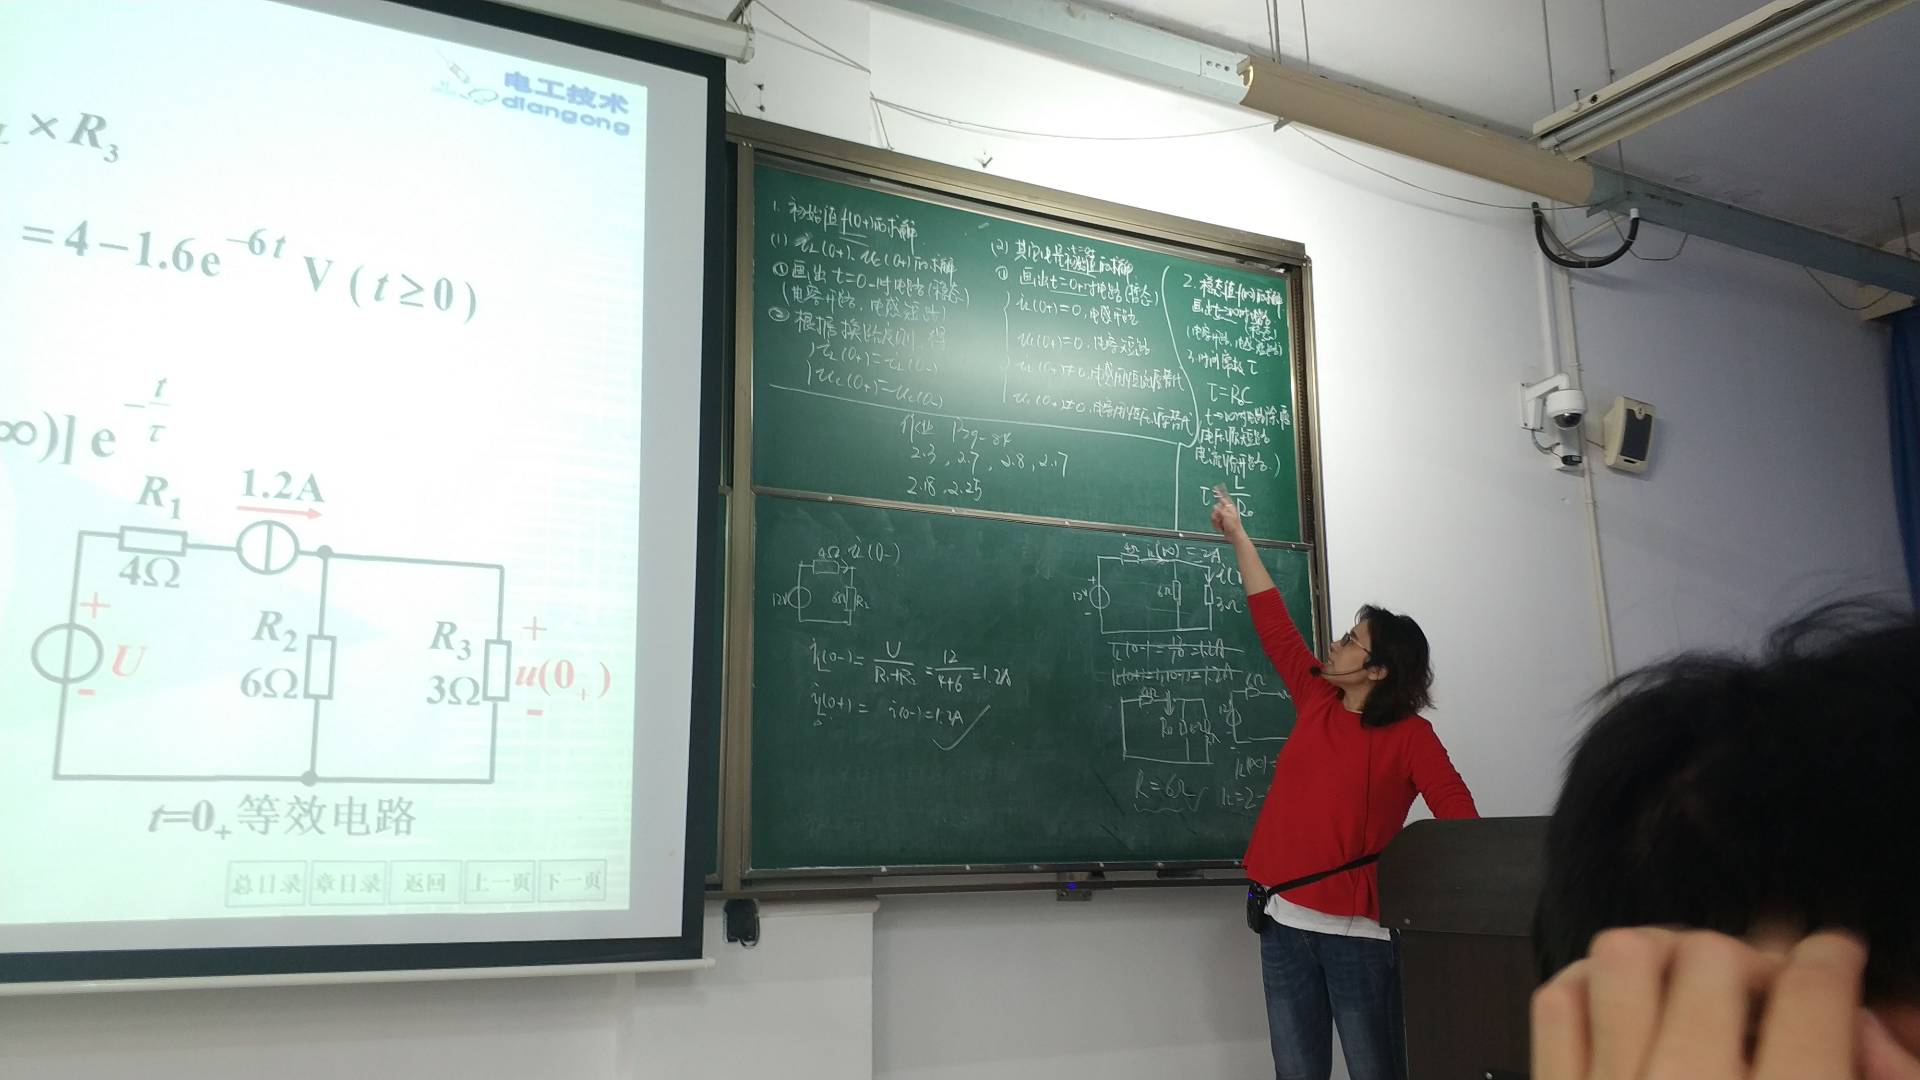 电工技术
diangong
× R₃
=4-1.6e^{-6t} V (t≥0)
∞)] e^{-t/τ}
R₁
1.2A
4Ω
+
U
-
R₂
6Ω
R₃
3Ω
+
u(0₊)
-
t=0₊等效电路
总目录 章目录 返回 上一页 下一页
1. 初始值f(0+)的求解
(1) iL(0+), uC(0+)的求解
①画出t=0-时电路(稳态)
(电容开路, 电感短路)
②根据换路定则, 得
iL(0+)=iL(0-)
uC(0+)=uC(0-)
(2) 其它电量初始值的求解
① 画出t=0+时电路
iL(0+)=0, 电感开路
uC(0+)=0, 电容短路
iL(0+)≠0, 电感用恒流源替代
uC(0+)≠0, 电容用恒压源替代
2. 稳态值f(∞)的求解
画出t→∞时电路
(稳态)
(电容开路, 电感短路)
3. 时间常数τ
τ=R₀C
电压源短路
电流源开路)
τ=L/R₀
作业
2.3, 2.7, 2.8, 2.17
2.18, 2.25
4Ω iL(0-)
12V 6Ω R₂
iL(0-)= U/(R₁+R₂) = 12/(4+6) =1.2A
iL(0+)= i(0-)=1.2A
4Ω iL(∞)=2A
+
12V
-
6Ω
3Ω
R=6Ω